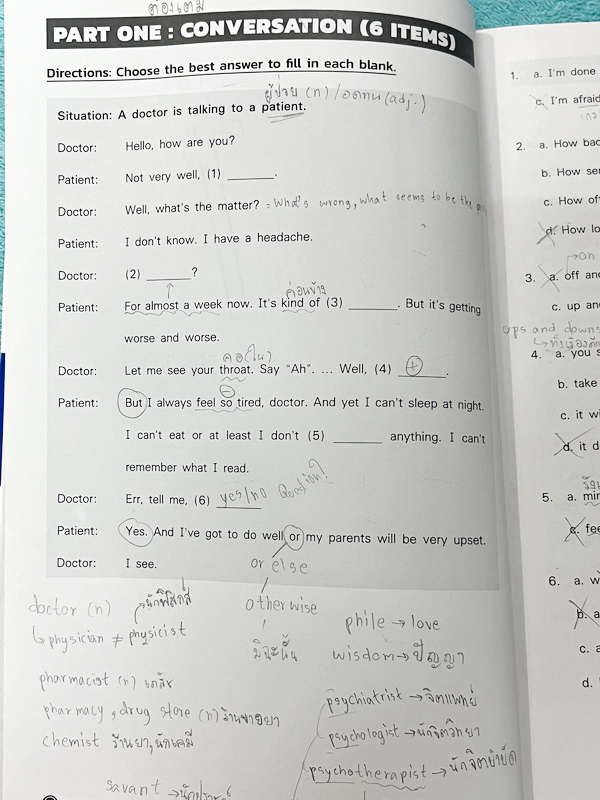 ต้องเต็ม
PART ONE : CONVERSATION (6 ITEMS)
Directions: Choose the best answer to fill in each blank.
ผู้ป่วย (n) / อดทน (adj.)
Situation: A doctor is talking to a patient.
Doctor: Hello, how are you?
Patient: Not very well, (1) ________.
Doctor: Well, what's the matter? = What's wrong, what seems to be the
Patient: I don't know. I have a headache.
Doctor: (2) ________?
ค่อนข้าง
Patient: For almost a week now. It's kind of (3) ________. But it's getting
worse and worse.
คอ (ใน)
Doctor: Let me see your throat. Say "Ah". ... Well, (4) ________.
Patient: But I always feel so tired, doctor. And yet I can't sleep at night.
I can't eat or at least I don't (5) ________ anything. I can't
remember what I read.
Doctor: Err, tell me, (6) yes/no Question?
Patient: Yes. And I've got to do well or my parents will be very upset.
Doctor: I see.
or else
otherwise
มิฉะนั้น
doctor (n)
นักฟิสิกส์
physician ≠ physicist
pharmacist (n) เภสัช
pharmacy, drug store (n) ร้านขายยา
chemist ร้านยา, นักเคมี
savant → นักปราชญ์
phile → love
wisdom → ปัญญา
psychiatrist → จิตแพทย์
psychologist → นักจิตวิทยา
psychotherapist → นักจิตบำบัด
1. a. I'm done
c. I'm afraid
2. a. How
b. How
c. How
d. How
3. a. off
on
c. up
ups and downs
4. a. you
b. take
c. it
d. it
5. a.
c.
6. a.
b.
c.
d.